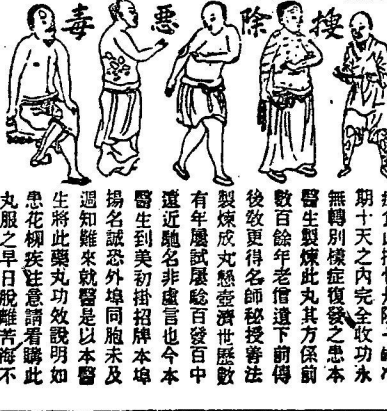 搜除惡毒
期十天之內完全收功永
無轉別樣症復發之患本
醫生製煉此丸其方係前
數百餘年老僧遺下前傳
後敎更得名師秘授善法
製煉成丸懸壺濟世歷數
有年屢試屢驗百發百中
遠近馳名非虛言也今本
醫生到美初掛招牌本埠
揚名誠恐外埠同胞未及
週知難來就醫是以本醫
生將此藥丸功效說明如
患花柳疾注意請看購此
丸服之早日脫離苦海不